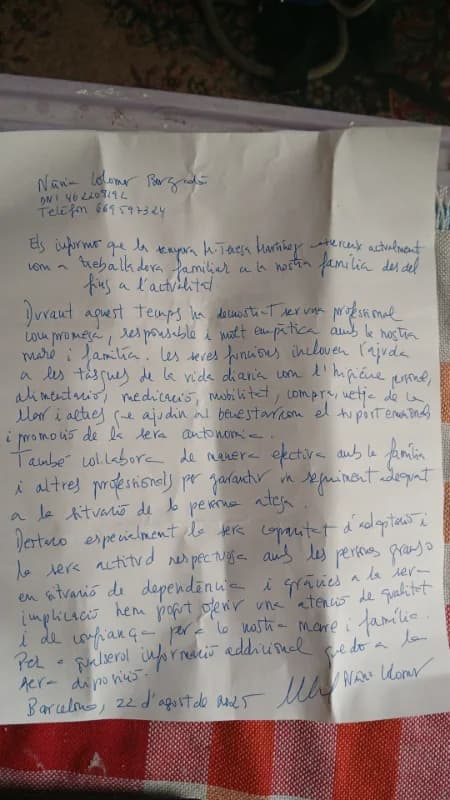 Núria Colomer
DNI
Telèfon 669597324
Els informo que la senyora M. Teresa Martínez exerceix actualment
com a treballadora familiar a la nostra família des del
fins a l'actualitat
Durant aquest temps ha demostrat ser una professional
compromesa, responsable i molt empàtica amb la nostra
mare i família. Les seves funcions inclouen l'ajuda
a les tasques de la vida diaria com l'higiène personal,
alimentació, medicació, mobilitat, compra, neteja de la
llar i altres que ajudin al benestar com el suport emocional
i promoció de la seva autonomia.
També col.labora de manera efectiva amb la família
i altres professionals per garantir un seguiment adequat
a la situació de la persona atesa.
Destaco especialment la seva capacitat d'adaptació i
la seva actitud respectuosa amb les persones grans
en situació de dependència i gràcies a la seva
implicació hem pogut oferir una atenció de qualitat
i de confiança per a la nostra mare i família.
Per a qualsevol informació addicional quedo a la
seva disposició.
Barcelona, 22 d'agost de 2025 Núria Colomer